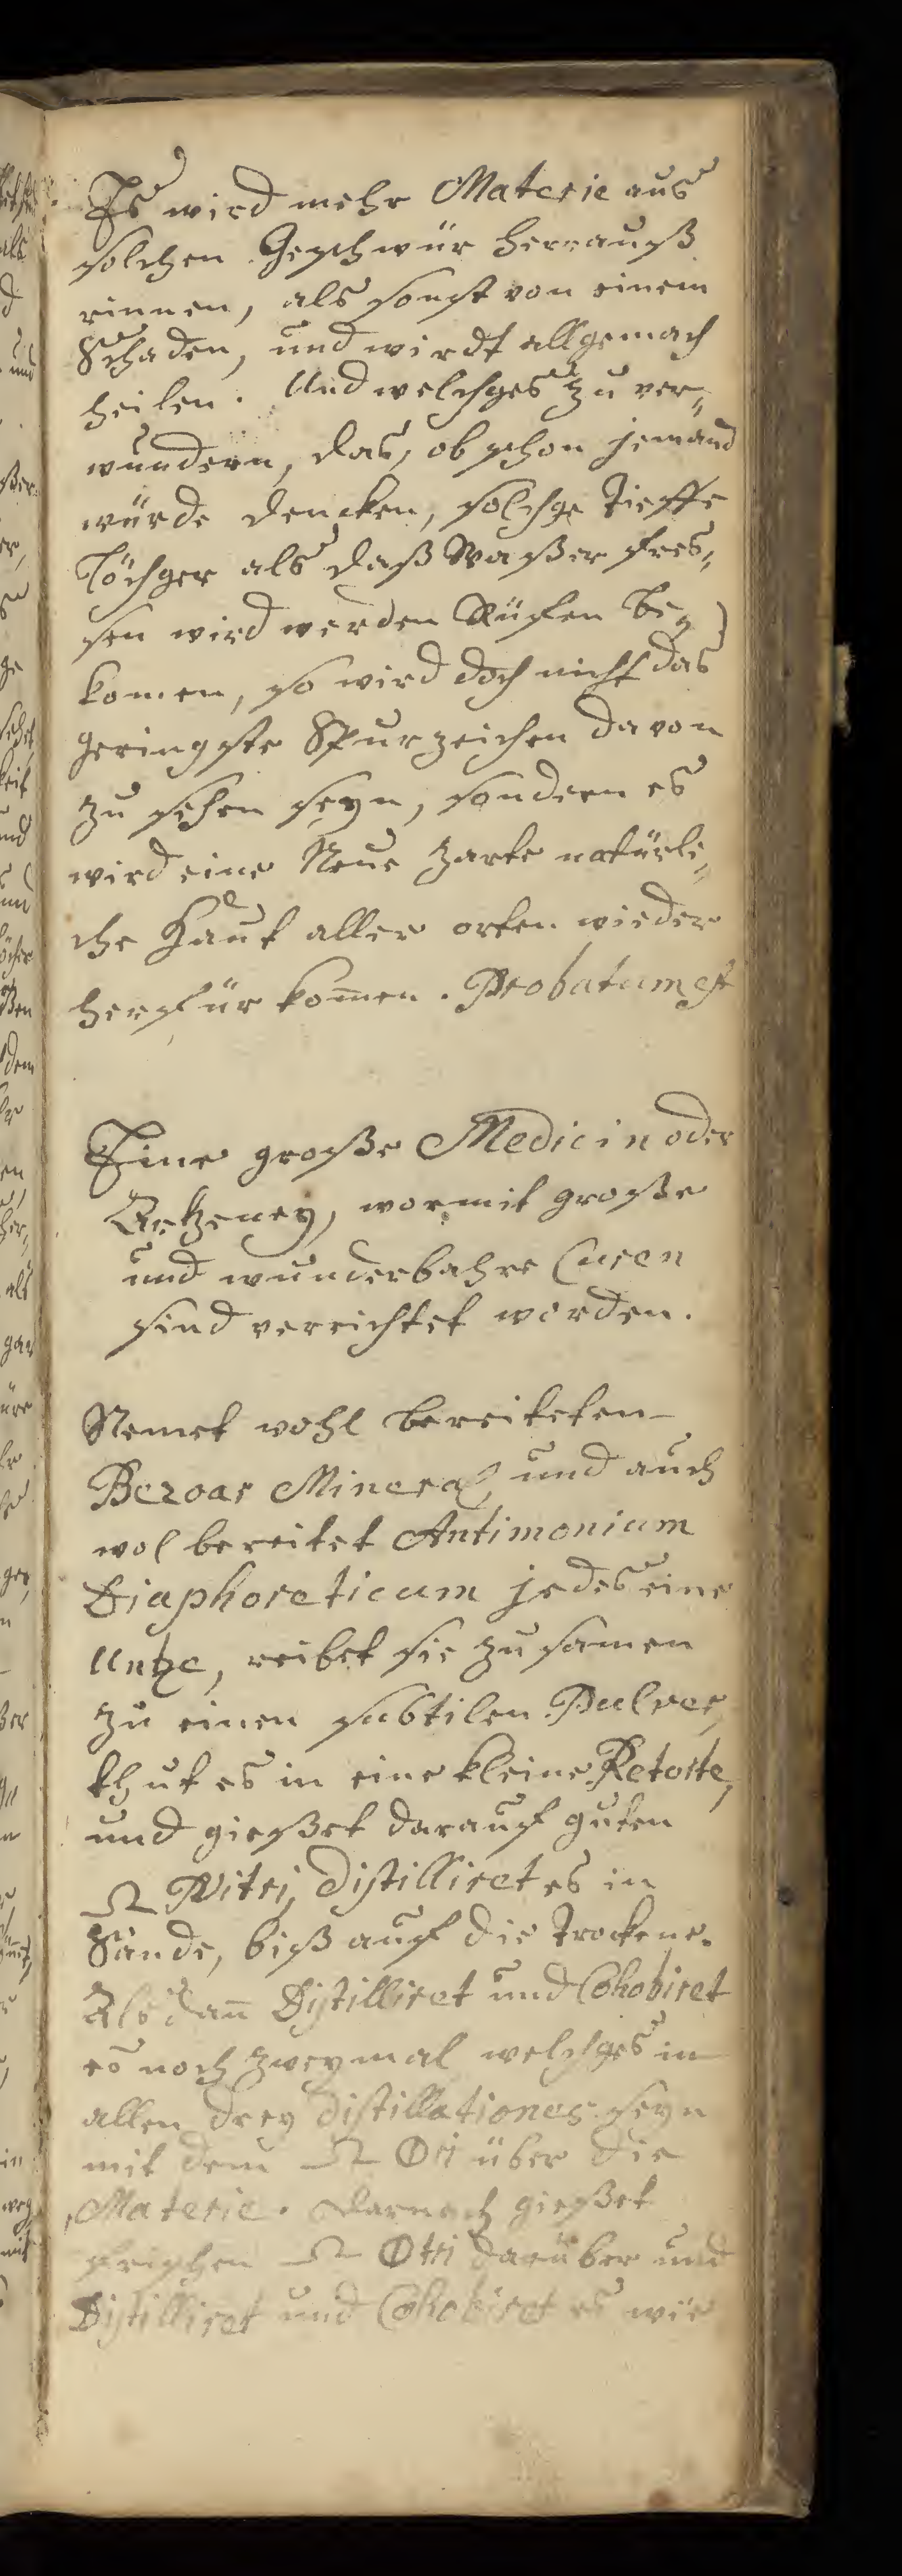 Es wird mehr Materie aus
solchen Geschwür herrauß
rinnen, als sonst von einem
Schaden, und wirdt allgemach
heilen. Und welches zu ver„
wundern, das, ob schon jemand
würde dencken, solche Tieffe
Löcher als daß Waßer fres„
sen wird werden Rüfen be„
komen, so wird doch nicht das
geringste Spurzeichen davon
zu sehen seyn, sondern es
wird eine Neue zarte natürli„
che Haut aller orten wieder
herfür kom̄en. Probatum est
Eine große Medicin oder
Artzeney, wormit große
und wunderbahre Curen
sind verrichtet worden.
Nemet wohl bereiteten
Bezoar Mineral, und auch
wol bereitet Antimonium
Diaphoreticum jedes eine
Untze, reibet sie zusamen
zu einen subtilen Pulver,
thut es in eine kleine Retorte,
und gießet darauf guten
Ω Nitri, distilliret es in
Sande, biß auf die Trockene.
Als dan̄ Distilliret und Cohobiret
es noch zweymal welches in
allen drey distillationes seyn
mit dem Ω 🜕tri über die
Materie. Darnach gießet
frischen Ω 🜕tri darüber und
Distilliret und Cohobiret es wie